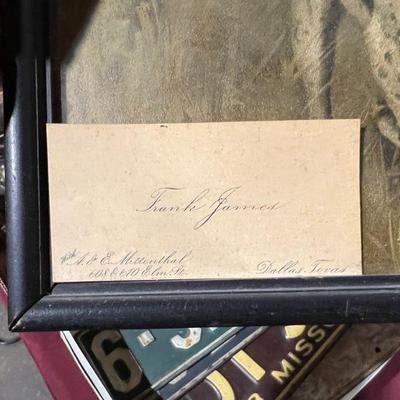 Frank James
With A & E. Mittenthal
608 & 610 Elm St.
Dallas, Texas
6
MISSO